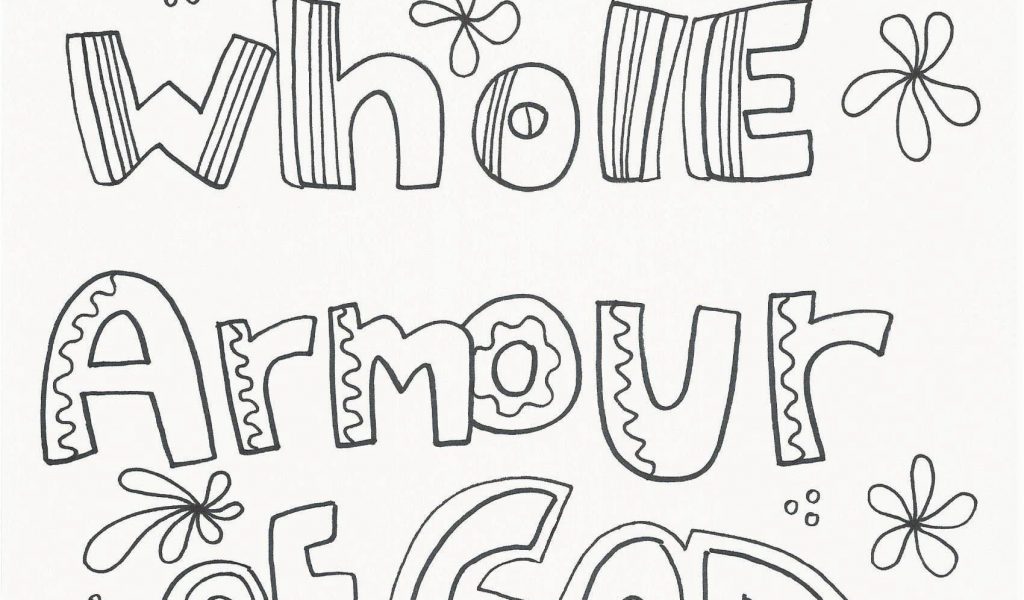 WholE
Armour
oF GOD